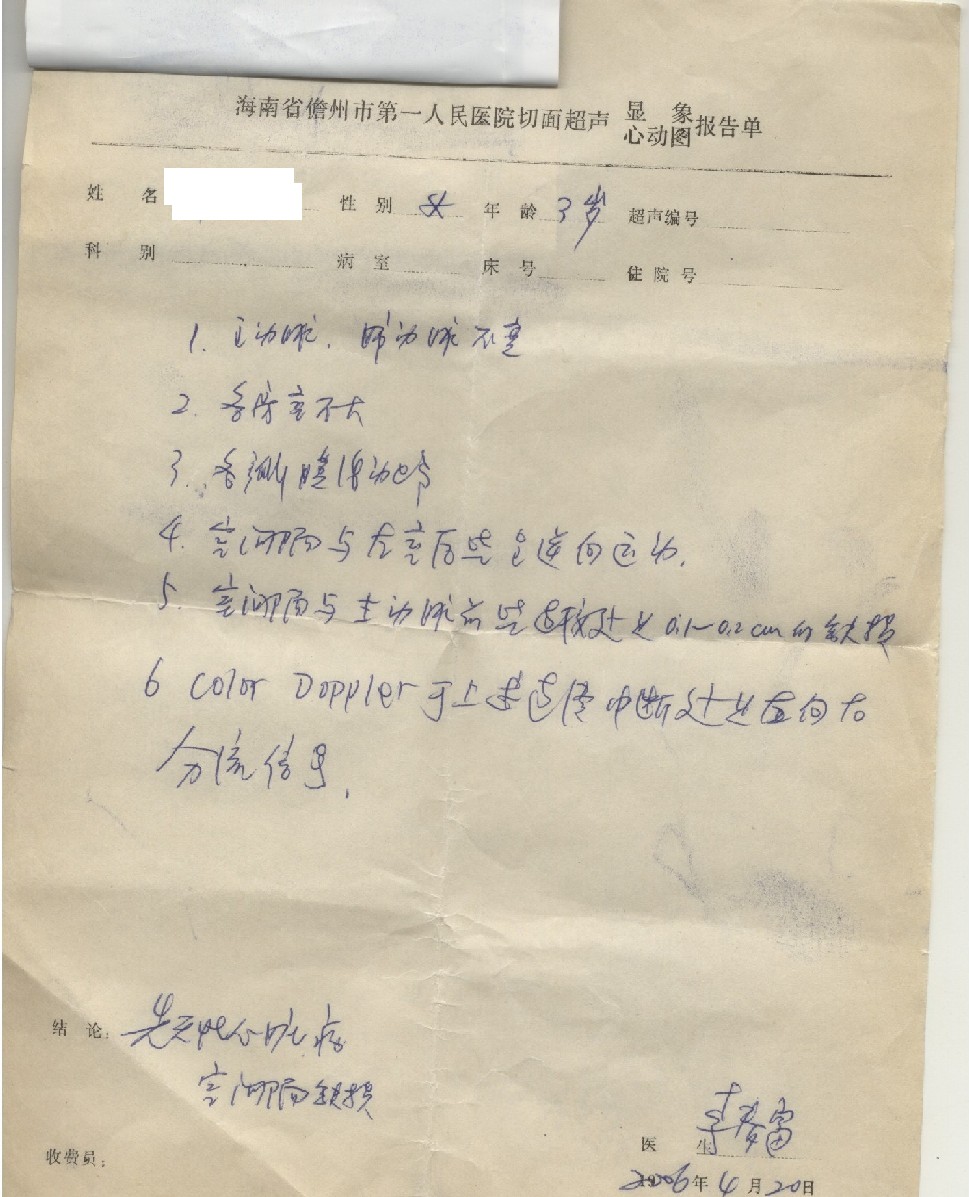 海南省儋州市第一人民医院切面超声显象心动图报告单
姓名 性别 女 年龄 3岁 超声编号
科别 病室 床号 住院号
1. 主动脉、肺动脉不宽
2. 各房室不大
3. 各瓣膜活动正常
4. 室间隔与左室后壁呈逆向运动.
5. 室间隔与主动脉前壁连接处见0.1~0.2cm的缺损
6 Color Doppler 于上述连续中断处见左向右
分流信号.
结论: 先天性心脏病
室间隔缺损
医生
收费员:
2006年4月20日